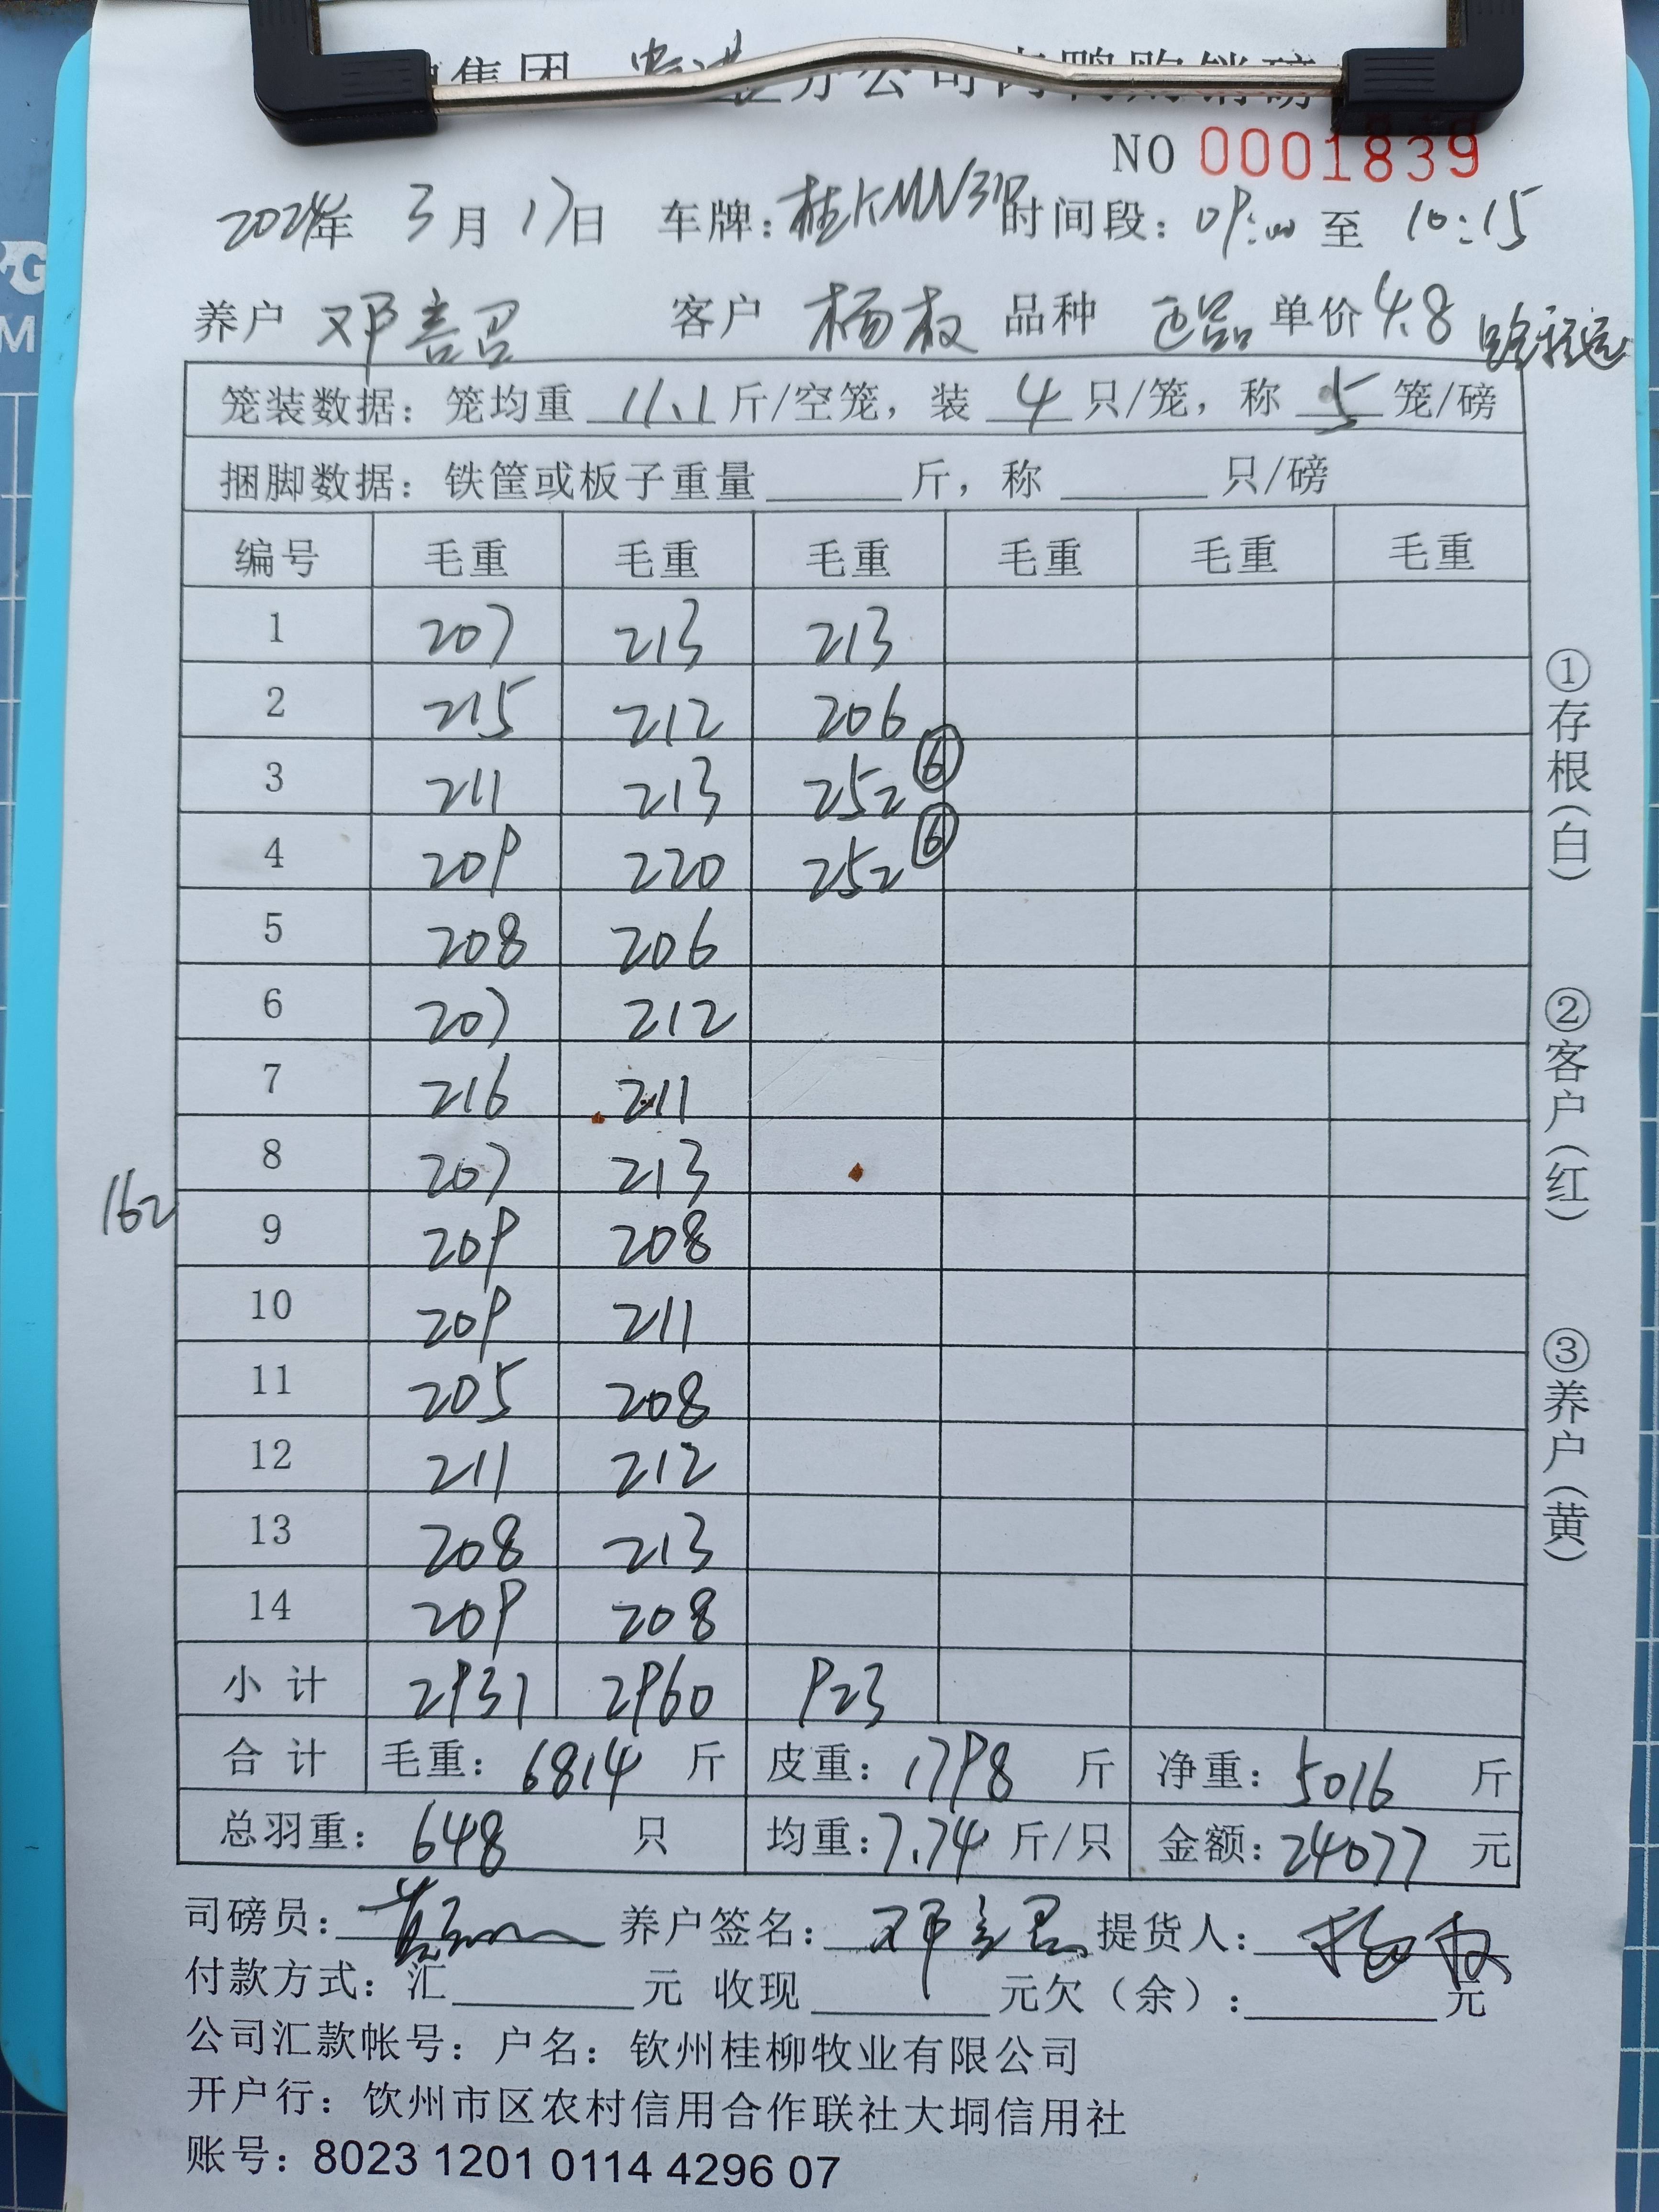 集团 分公司肉鸭购销磅
NO 0001839
2024年 3月17日 车牌:桂KMN318 时间段:09:00 至 10:15
养户 邓善召 客户 杨权 品种 正品 单价 4.8
笼装数据:笼均重 11.1 斤/空笼,装 4 只/笼,称 5 笼/磅
捆脚数据:铁筐或板子重量 斤,称 只/磅
编号 毛重 毛重 毛重 毛重 毛重 毛重
1 207 213 213
2 215 212 206
3 211 213 252 ⑥
4 209 220 252 ⑥
5 208 206
6 207 212
7 216 211
8 207 213
162
9 209 208
10 209 211
11 205 208
12 211 212
13 208 213
14 209 208
小计 2931 2960 923
合计 毛重:6814 斤 皮重:1798 斤 净重:5016 斤
总羽重:648 只 均重:7.74 斤/只 金额:24077 元
①存根(白)
②客户(红)
③养户(黄)
司磅员: 养户签名:邓善召 提货人:杨权
付款方式:汇 元 收现 元欠(余): 元
公司汇款帐号:户名:钦州桂柳牧业有限公司
开户行:钦州市区农村信用合作联社大垌信用社
账号:8023 1201 0114 4296 07